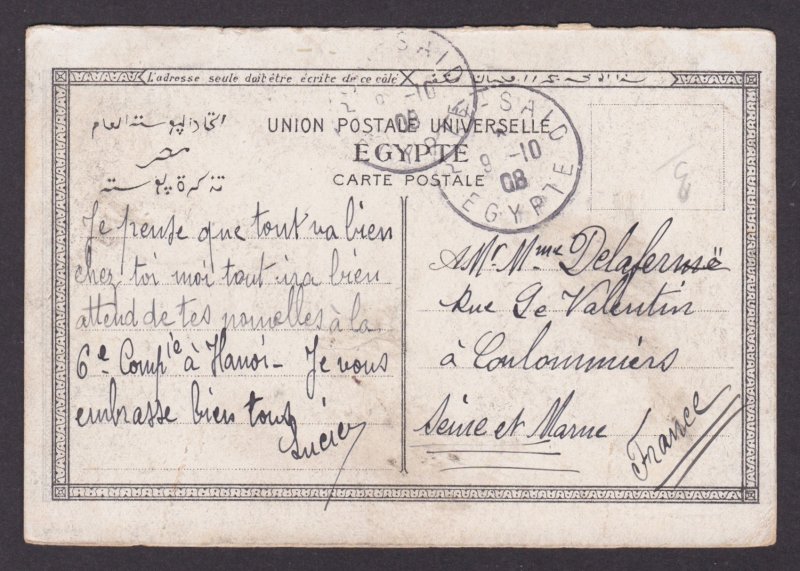 L'adresse seule doit être écrite de ce côté
UNION POSTALE UNIVERSELLE
EGYPTE
CARTE POSTALE
اتحاد البوسته العام
مصر
تذكرة بوسته
PORT-SAID
9 -10
08
EGYPTE
SAID
9 -10
08
3
Je pense que tout va bien
chez toi moi tout ira bien
attend de tes nouvelles à la
6e Compie à Hanoï - Je vous
embrasse bien tous
Lucien
A Mr Mme Delaferme
Rue de Valentin
à Coulommiers
Seine et Marne
France